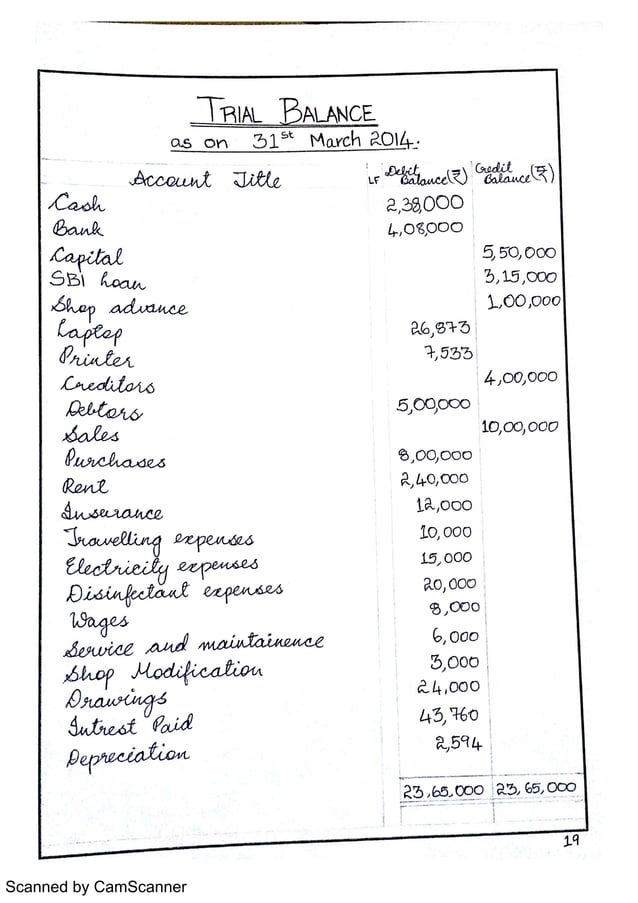 TRIAL BALANCE
as on 31st March 2014.
Account Title LF Debit Balance(₹) Credit Balance (₹)
Cash 2,38,000
Bank 4,08,000
Capital 5,50,000
SBI Loan 3,15,000
Shop advance 1,00,000
Laptop 26,873
Printer 7,533
Creditors 4,00,000
Debtors 5,00,000
Sales 10,00,000
Purchases 8,00,000
Rent 2,40,000
Insurance 12,000
Travelling expenses 10,000
Electricity expenses 15,000
Disinfectant expenses 20,000
Wages 8,000
Service and maintainence 6,000
Shop Modification 3,000
Drawings 24,000
Intrest Paid 43,760
Depreciation 2,594
23,65,000 23,65,000
19
Scanned by CamScanner